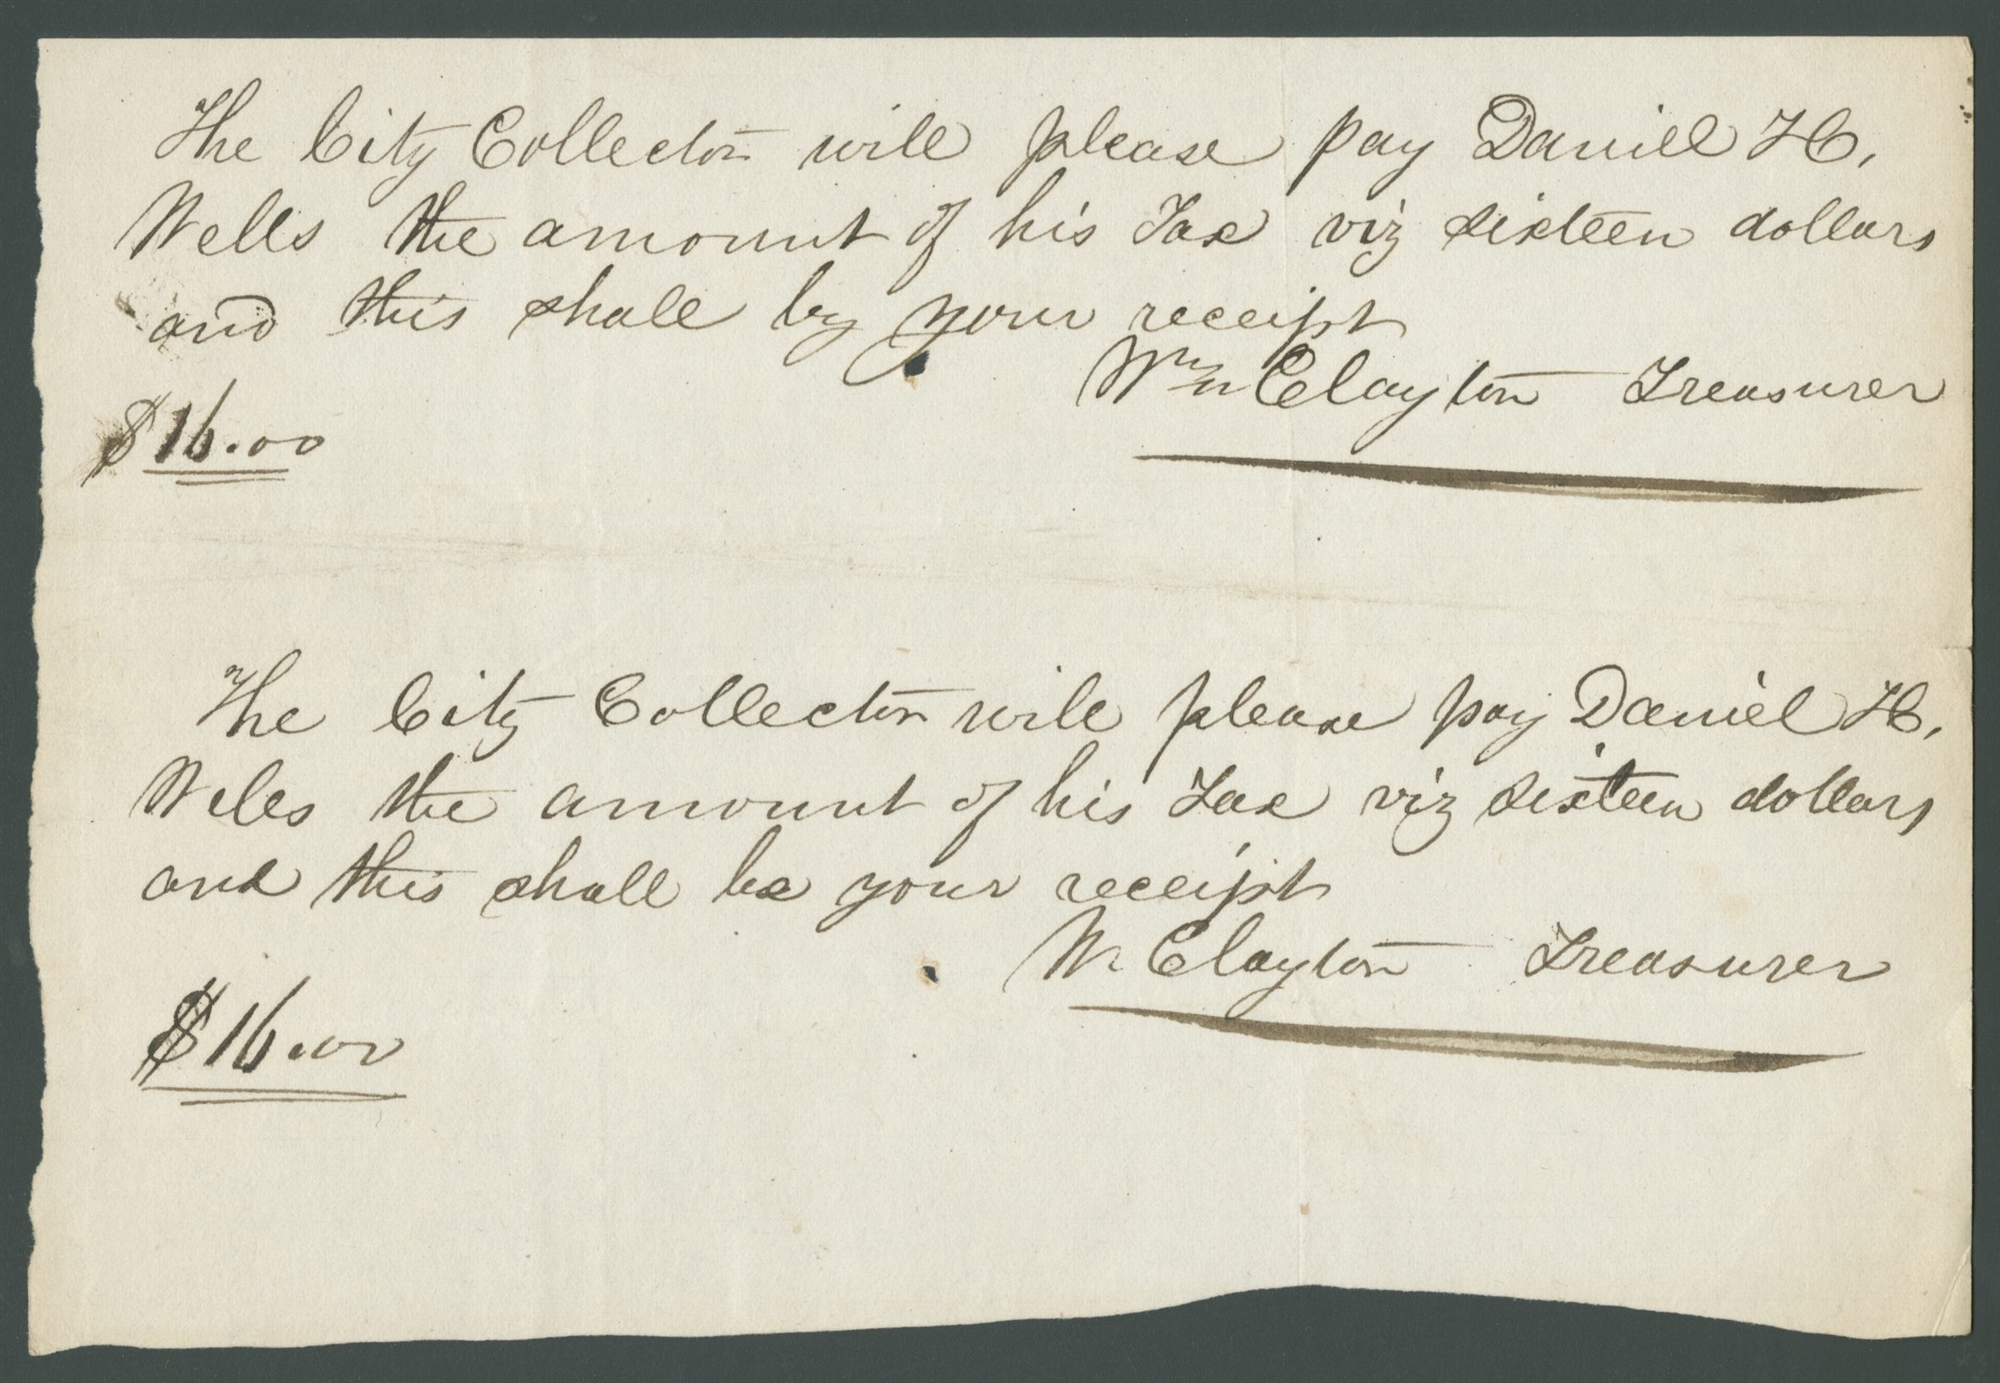 The City Collector will please pay Daniel H.
Wells the amount of his Tax viz sixteen dollars
and this shall by your receipt
Wm Clayton Treasurer
$16.00
The City Collector will please pay Daniel H.
Wells the amount of his Tax viz sixteen dollars
and this shall be your receipt
Wm Clayton Treasurer
$16.00